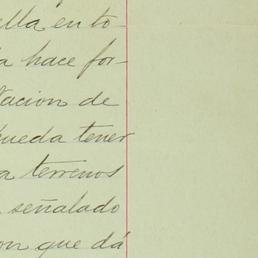 ella en to-
a hace for-
tacion de
pueda tener
a terrenos
señalado
on que dá